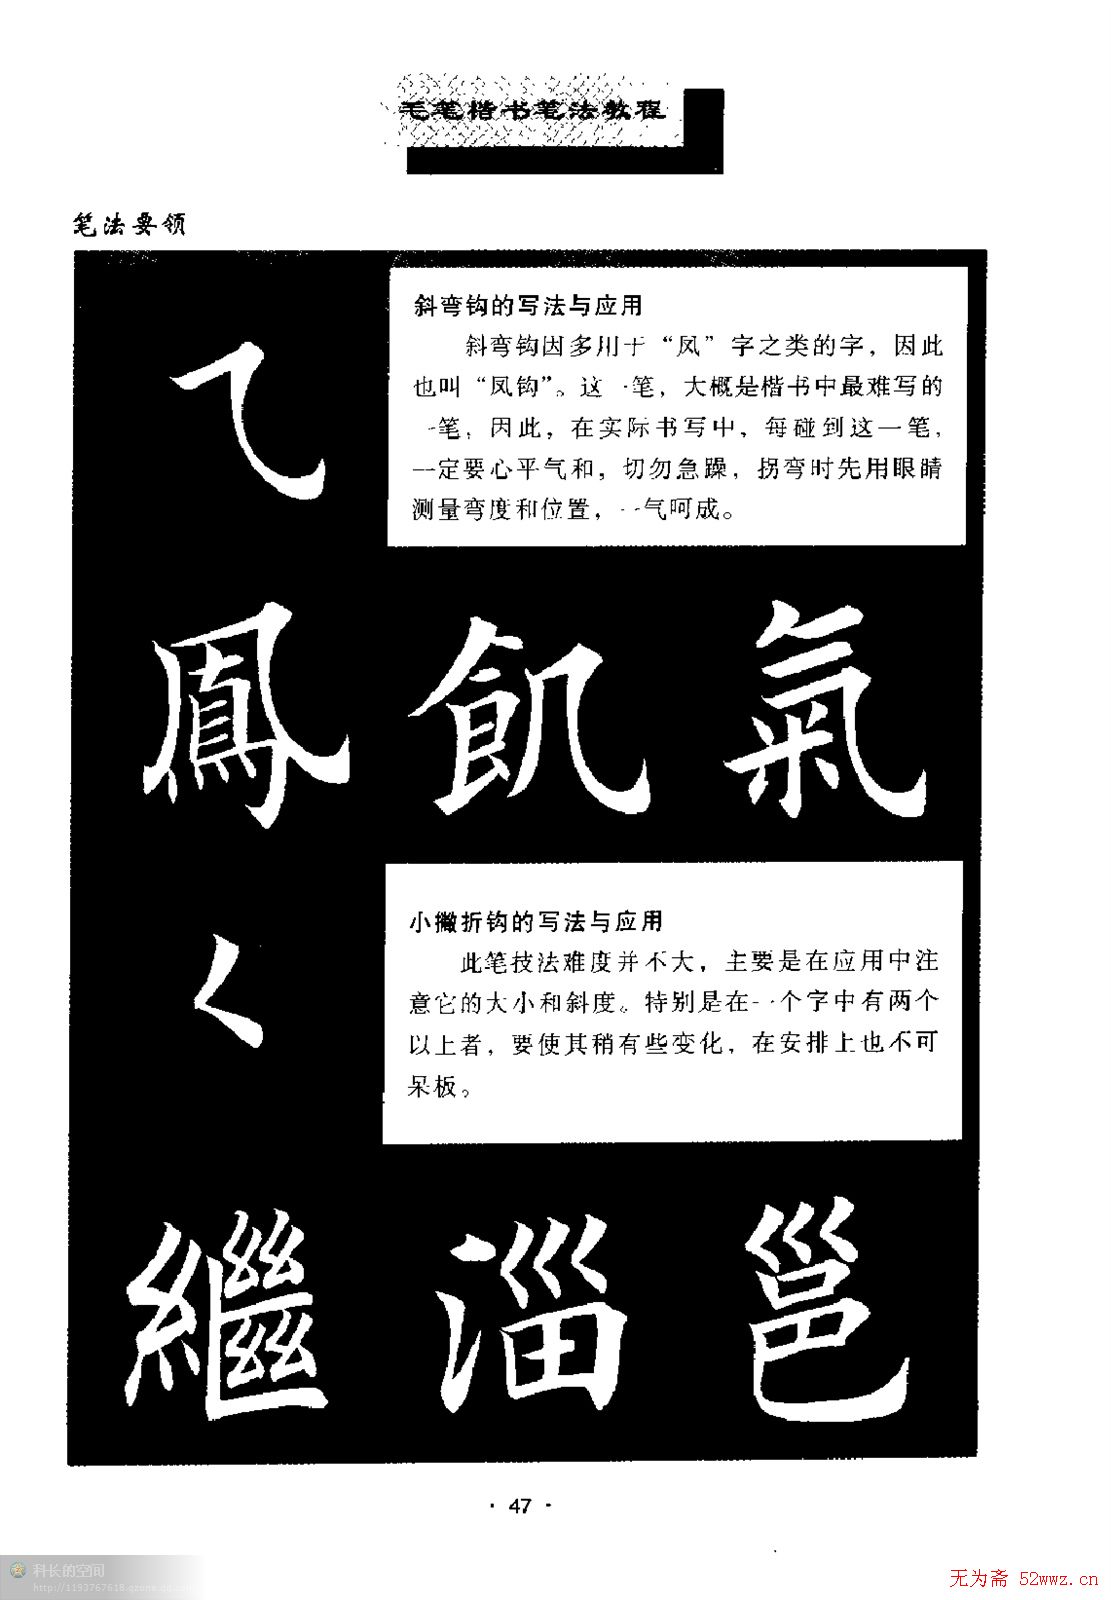 毛笔楷书笔法教程
笔法要领
斜弯钩的写法与应用
斜弯钩因多用于“凤”字之类的字，因此
也叫“凤钩”。这一笔，大概是楷书中最难写的
一笔，因此，在实际书写中，每碰到这一笔，
一定要心平气和，切勿急躁，拐弯时先用眼睛
测量弯度和位置，一气呵成。
鳳 飢 氣
小撇折钩的写法与应用
此笔技法难度并不大，主要是在应用中注
意它的大小和斜度。特别是在一个字中有两个
以上者，要使其稍有些变化，在安排上也不可
呆板。
繼 淄 邕
· 47 ·
科长的空间
http://1193767618.qzone.qq.com
无为斋 52wwz.cn